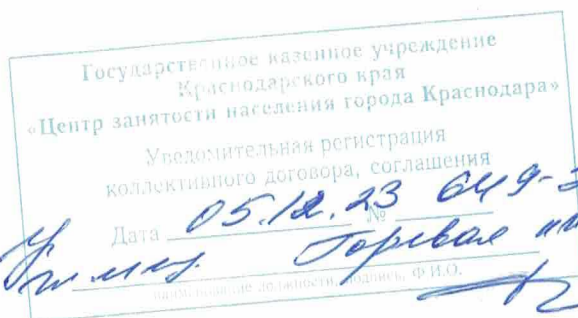 Государственное казенное учреждение
Краснодарского края
«Центр занятости населения города Краснодара»
Уведомительная регистрация
коллективного договора, соглашения
Дата 05.12.23 № 649-3
Горевая
наименование должности, подпись, Ф.И.О.